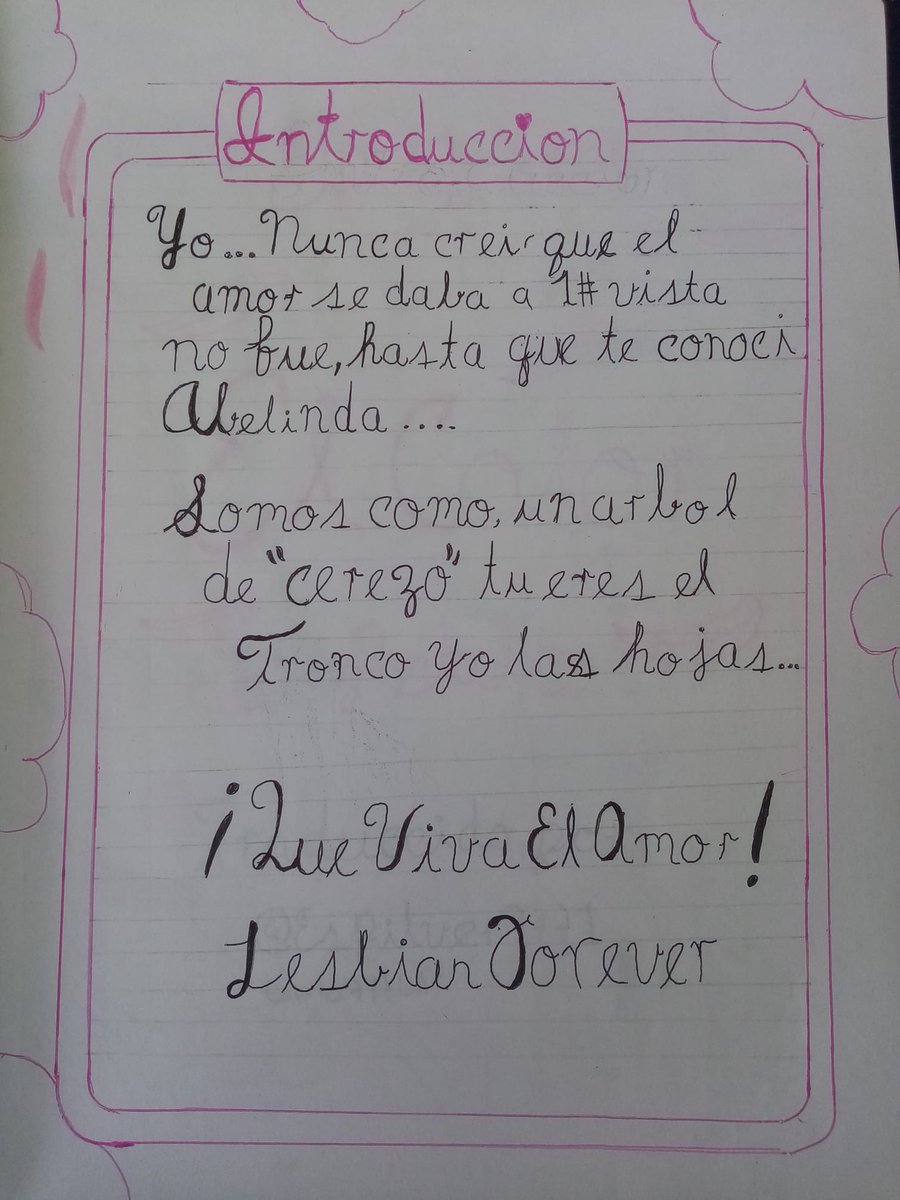 Introduccion
Yo... Nunca crei que el
amor se daba a 1# vista
no fue, hasta que te conoci
Abelinda ....
Somos como, un arbol
de "cerezo" tu eres el
Tronco yo las hojas...
¡Que Viva El Amor!
Lesbian Forever